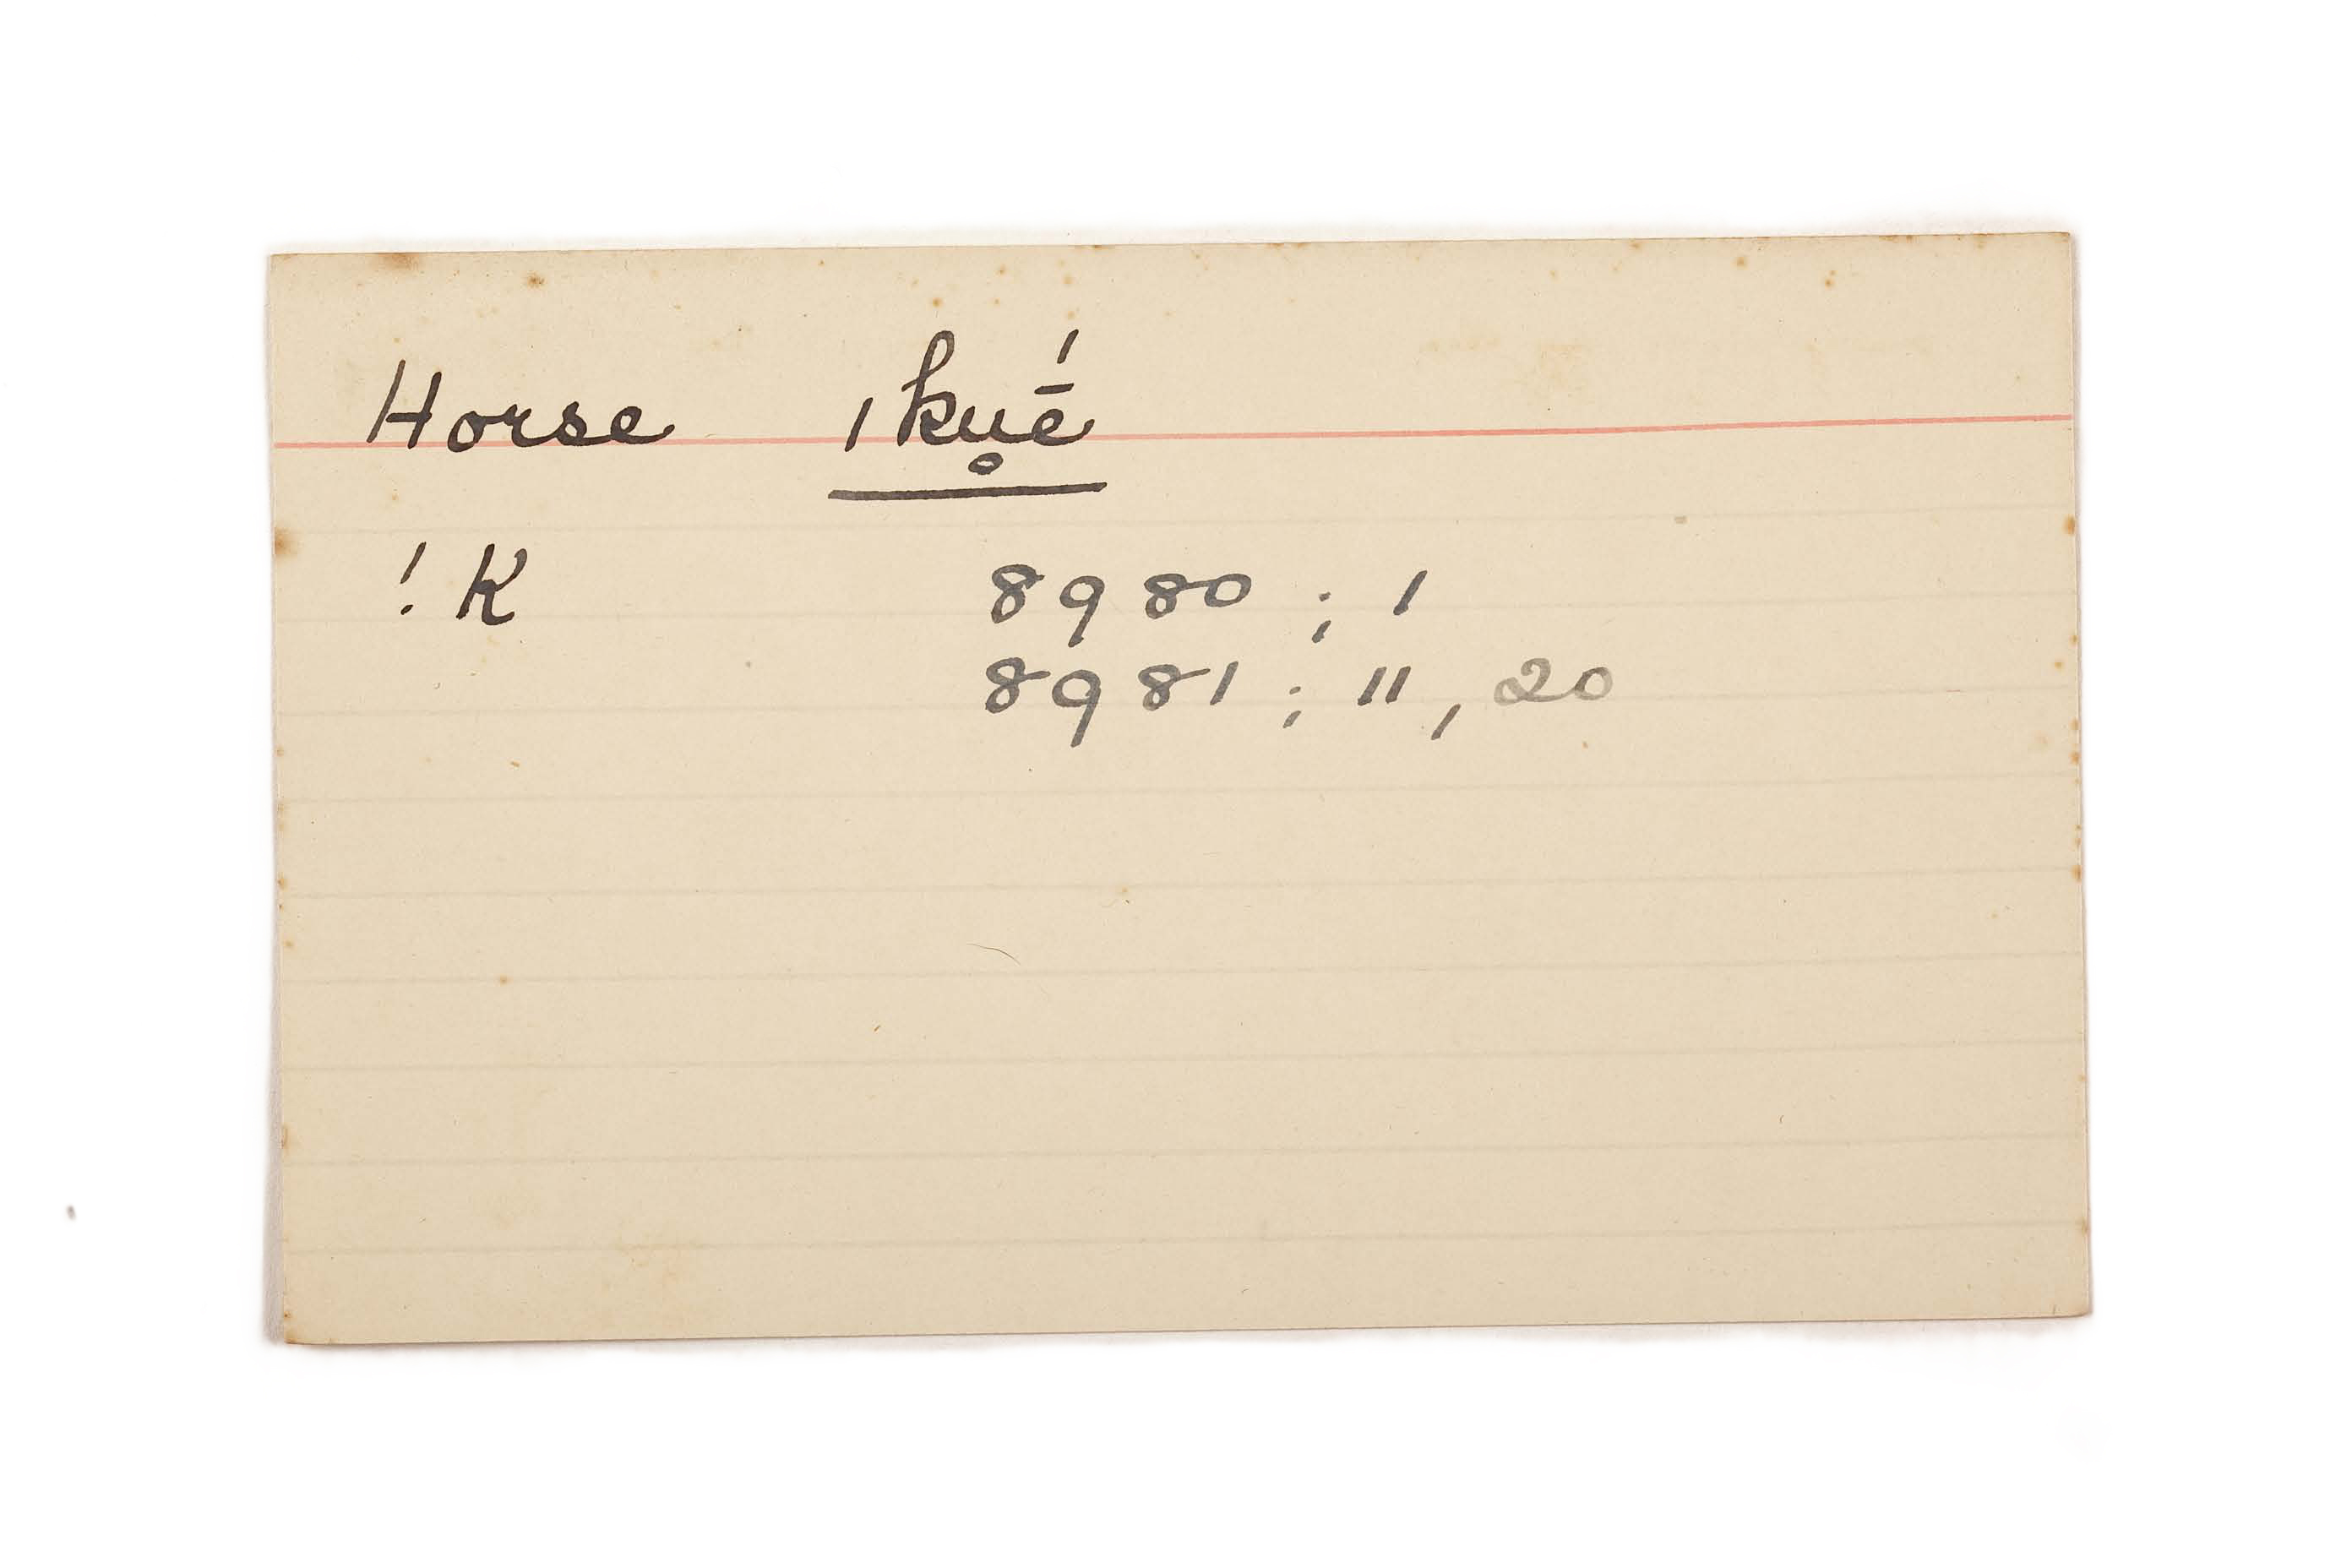 Horse ǀku̥ḗ
! K 8980 ; 1
8981 ; 11, 20